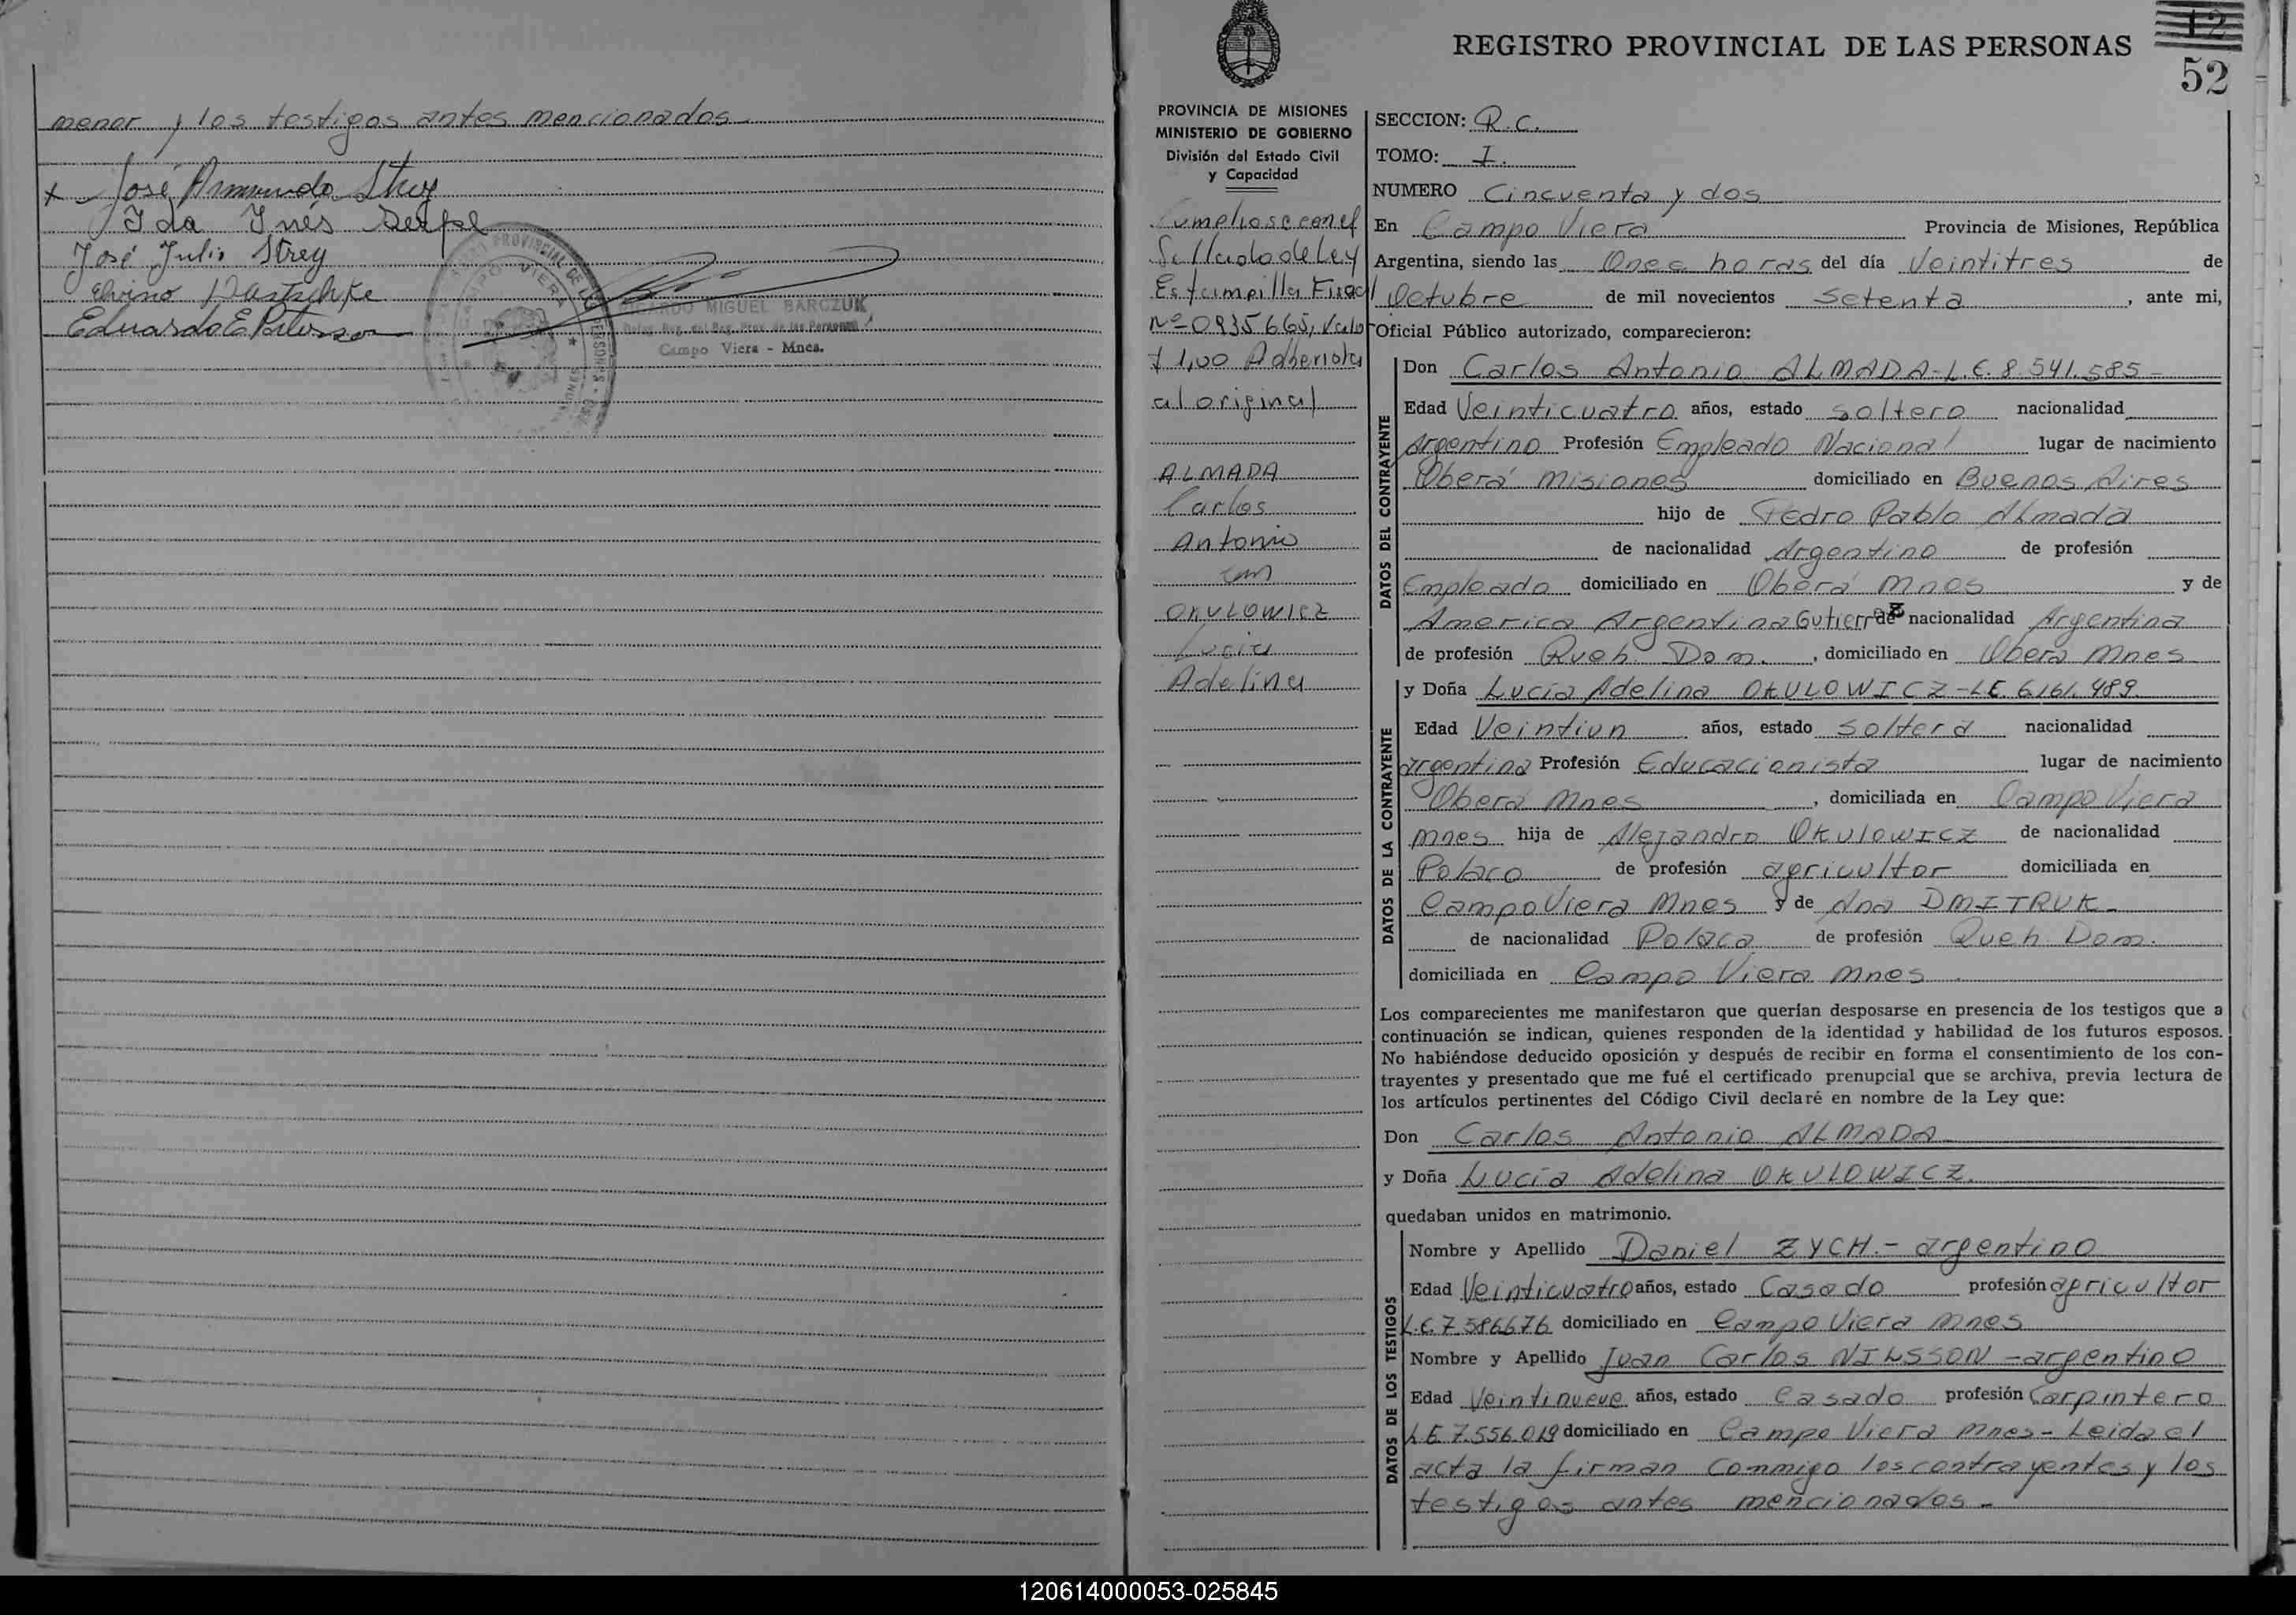 menor y los testigos antes mencionados
José Armando Strey
Ida Inés Serpe
José Julio Strey
Elvino
Eduardo E.
PROVINCIAL DE LAS PERSONAS
CAMPO VIERA
RICARDO MIGUEL BARCZUK
Deleg. Reg. del Reg. Prov. de las Personas
Campo Viera - Mnes.
REGISTRO PROVINCIAL DE LAS PERSONAS
12
52
PROVINCIA DE MISIONES
MINISTERIO DE GOBIERNO
División del Estado Civil
y Capacidad
Cumpliose con el
Sellado de Ley
Estampilla Fiscal
Nº 0935665, Valor
$ 1,00 Adherida
al original
ALMADA
Carlos
Antonio
con
OKULOWICZ
Lucia
Adelina
SECCION: R.C.
TOMO: I.
NUMERO Cincuenta y dos
En Campo Viera Provincia de Misiones, República
Argentina, siendo las Once horas del día Veintitres de
Octubre de mil novecientos Setenta, ante mi,
Oficial Público autorizado, comparecieron:
DATOS DEL CONTRAYENTE
Don Carlos Antonio ALMADA-L.E. 8.541.585-
Edad Veinticuatro años, estado soltero nacionalidad
Argentino Profesión Empleado Nacional lugar de nacimiento
Oberá Misiones domiciliado en Buenos Aires
hijo de Pedro Pablo Almada
de nacionalidad Argentino de profesión
Empleado domiciliado en Oberá Mnes y de
America Argentina Gutierrez de nacionalidad Argentina
de profesión Queh. Dom., domiciliado en Oberá Mnes
DATOS DE LA CONTRAYENTE
y Doña Lucía Adelina OKULOWICZ-L.E. 6.161.489
Edad Veintiun años, estado soltera nacionalidad
argentina Profesión Educacionista lugar de nacimiento
Oberá Mnes, domiciliada en Campo Viera
Mnes hija de Alejandro OKULOWICZ de nacionalidad
Polaco de profesión agricultor domiciliada en
Campo Viera Mnes y de Ana DMITRUK-
de nacionalidad Polaca de profesión Queh. Dom.
domiciliada en Campo Viera Mnes
Los comparecientes me manifestaron que querían desposarse en presencia de los testigos que a
continuación se indican, quienes responden de la identidad y habilidad de los futuros esposos.
No habiéndose deducido oposición y después de recibir en forma el consentimiento de los con-
trayentes y presentado que me fué el certificado prenupcial que se archiva, previa lectura de
los artículos pertinentes del Código Civil declaré en nombre de la Ley que:
Don Carlos Antonio ALMADA
y Doña Lucía Adelina OKULOWICZ.
quedaban unidos en matrimonio.
DATOS DE LOS TESTIGOS
Nombre y Apellido Daniel ZYCH.- argentino
Edad Veinticuatro años, estado Casado profesión agricultor
L.E. 7.586676 domiciliado en Campo Viera Mnes
Nombre y Apellido Juan Carlos NILSSON -argentino
Edad Veintinueve años, estado Casado profesión Carpintero
L.E. 7.556.019 domiciliado en Campo Viera Mnes- Leida el
acta la firman conmigo los contrayentes y los
testigos antes mencionados.-
120614000053-025845